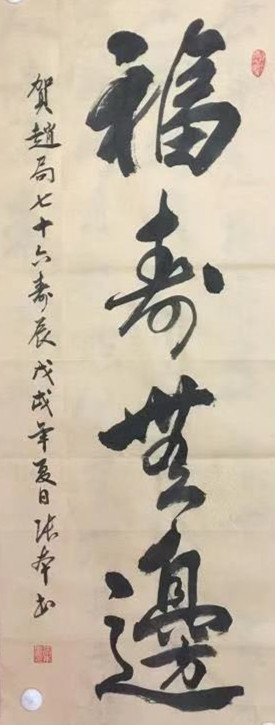 福壽無邊
賀趙局七十六壽辰戊戌年夏日張本書